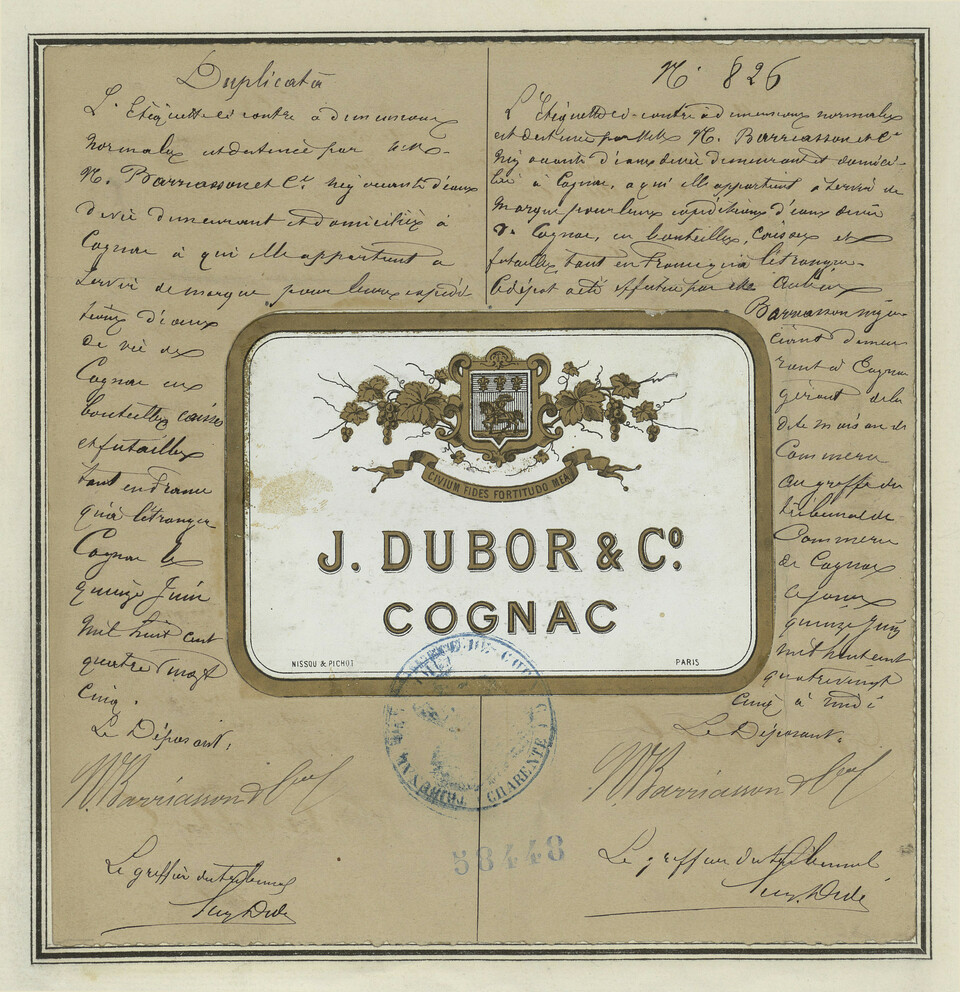 Duplicata
L'Etiquette ci contre à dimensions
Normales est destinée par MM.
N. Barriasson et Cie négociants d'eaux
de vie demeurant et domiciliés à
Cognac à qui elle appartient à
servir de marque pour leurs expédi-
tions d'eaux
de vie de
Cognac en
bouteilles caisses
et futailles
tant en France
qu'à l'étranger
Cognac le
quinze Juin
mil huit cent
quatre vingt
cinq.
Le Déposant:
N Barriasson &
Le greffier du tribunal
N° 826
L'Etiquette ci-contre à dimensions normales
est destinée par MM N. Barriasson et Cie
négociants d'eaux de vie demeurant et domici-
liés à Cognac, à qui elle appartient à servir de
marque pour leurs expéditions d'eaux de vie
de Cognac, en bouteilles, caisses et
futailles tant en France qu'à l'étranger.
Le dépôt a été effectué par
Barriasson négo-
ciant demeu-
rant à Cognac
gérant de la
dite maison de
Commerce
au greffe du
tribunal de
Commerce
de Cognac
ce jour
quinze Juin
mil huit cent
quatre vingt
cinq à midi
Le Déposant:
N Barriasson &
Le greffier du tribunal
CIVIUM FIDES FORTITUDO MEA
J. DUBOR & Cº.
COGNAC
NISSOU & PICHOT
PARIS
TRIBUNAL
CHARENTE
58448